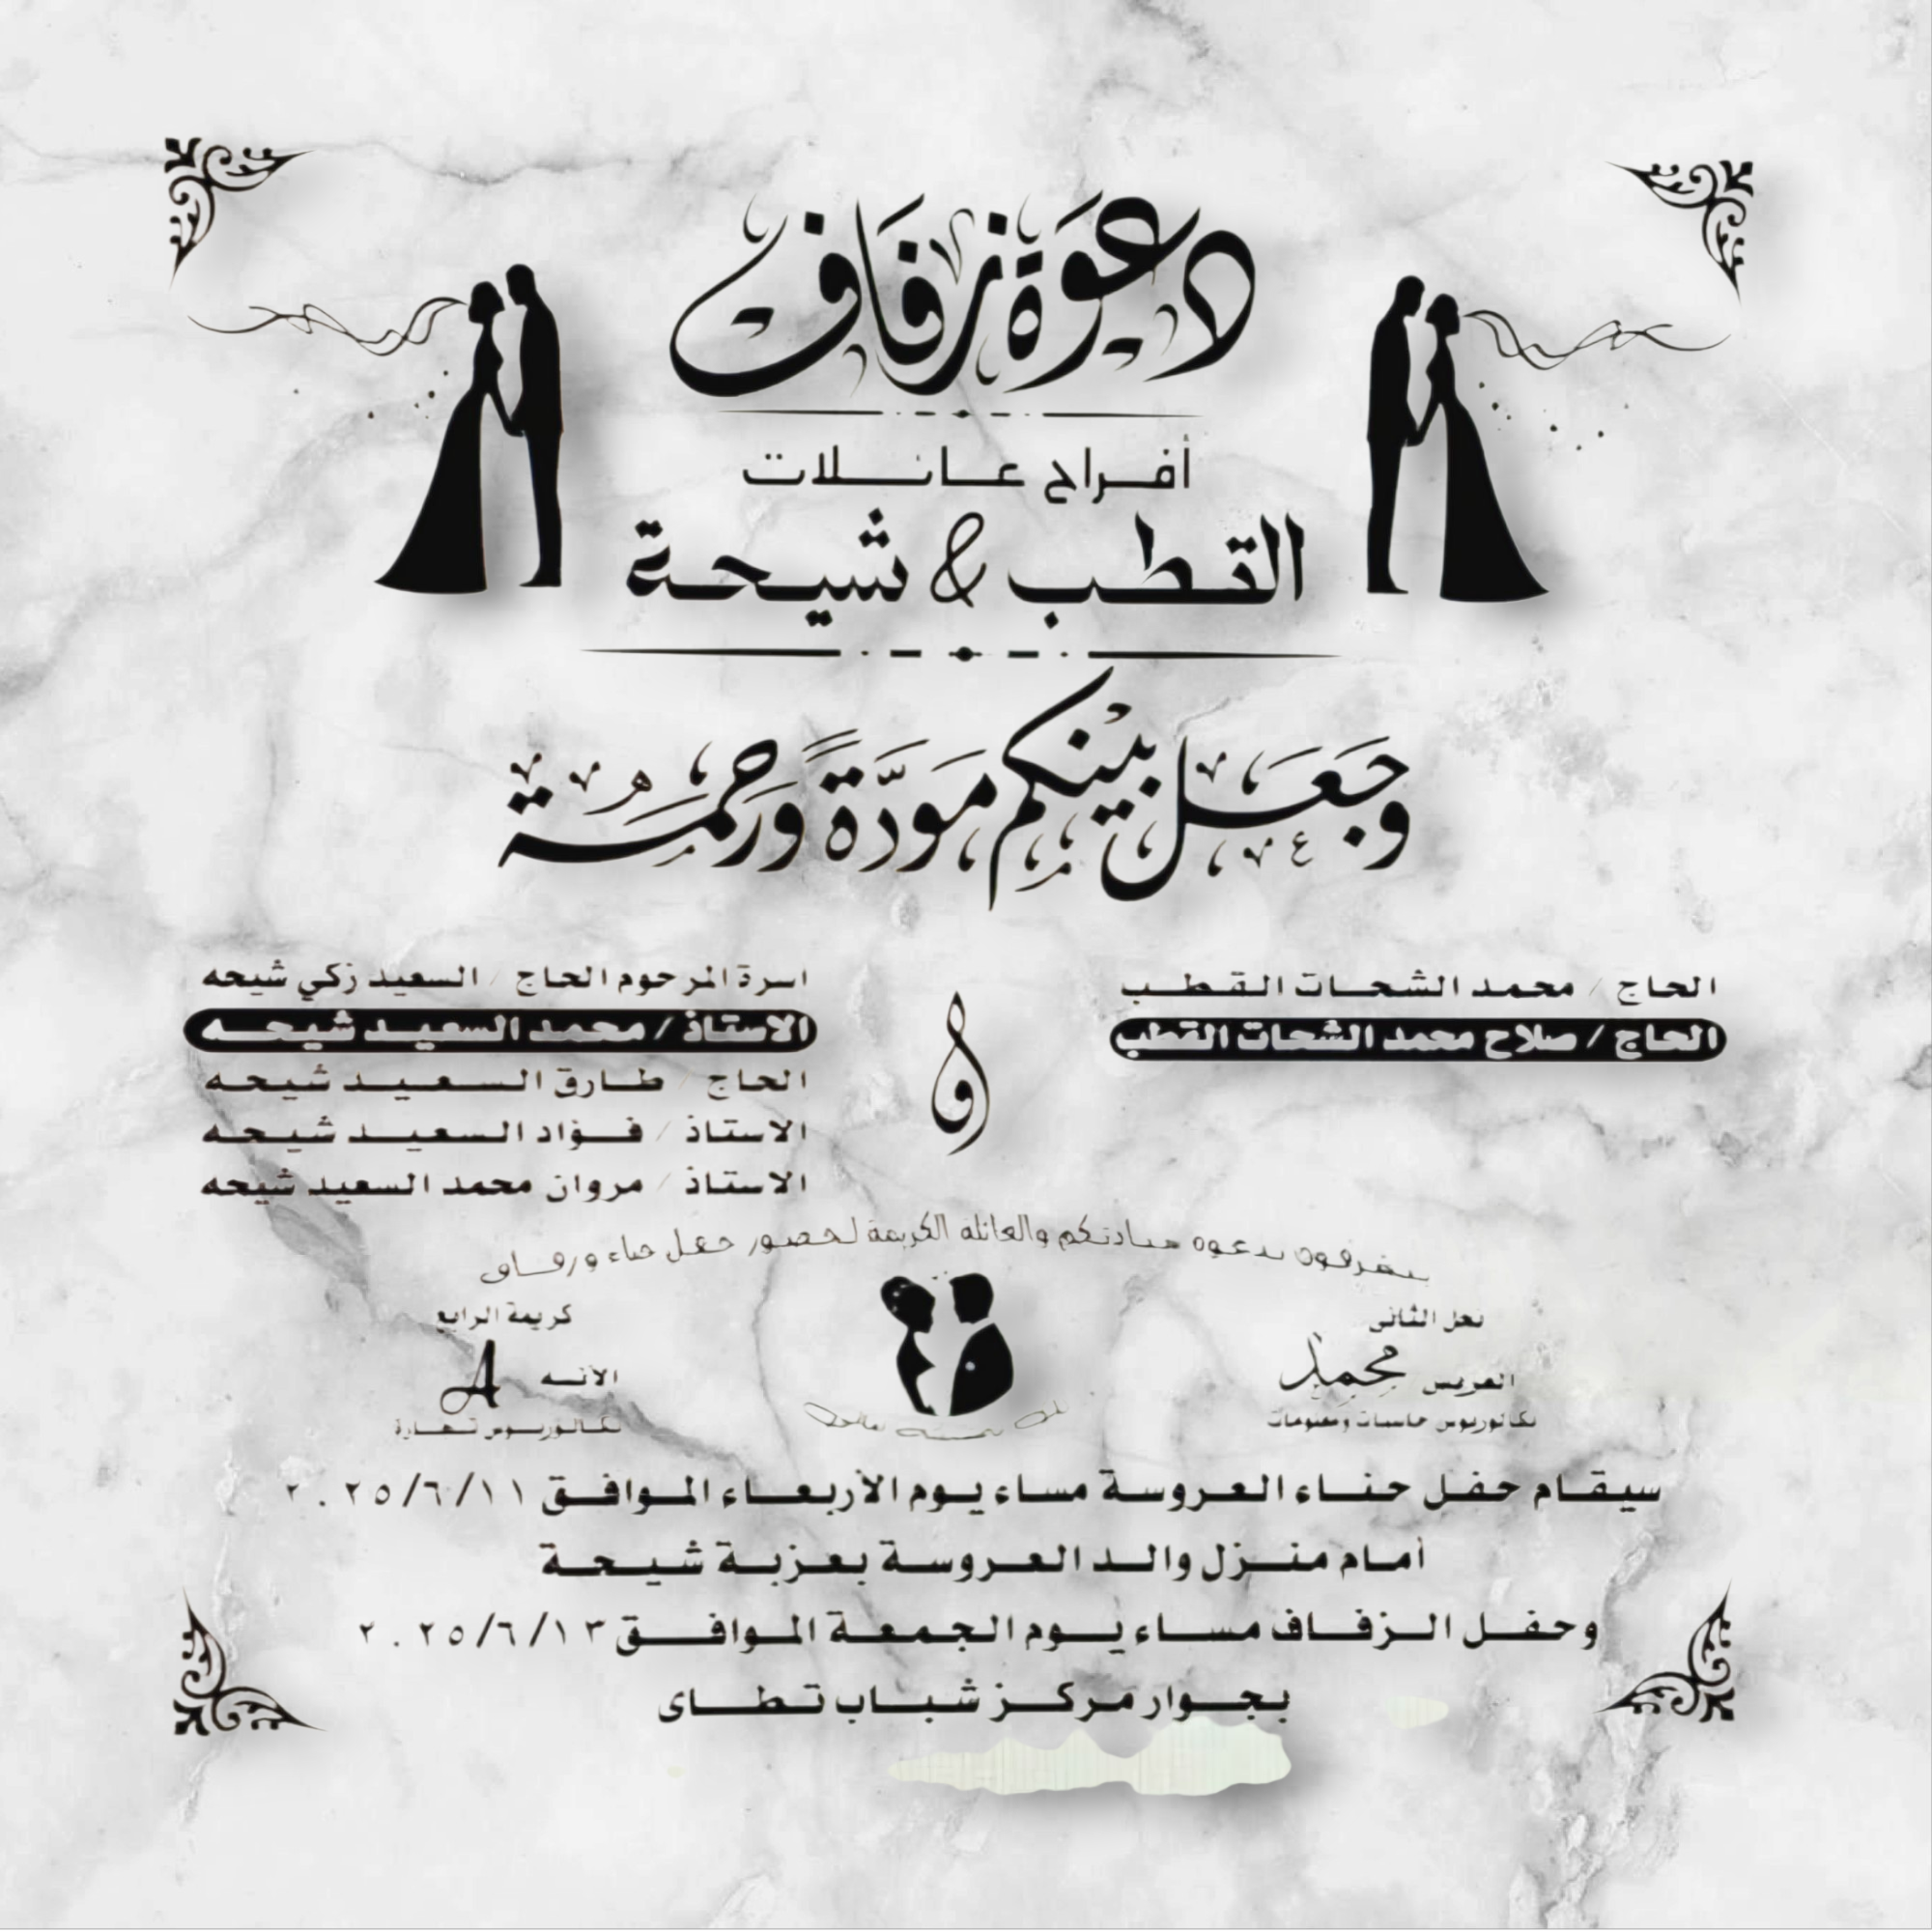 دعوة زفاف
أفراح عائلات
القطب & شيحة
وجعل بينكم مودة ورحمة
الحاج / محمد الشحات القطب
الحاج / صلاح محمد الشحات القطب
و
اسرة المرحوم الحاج / السعيد زكي شيحه
الاستاذ / محمد السعيد شيحه
الحاج / طارق السعيد شيحه
الاستاذ / فؤاد السعيد شيحه
الاستاذ / مروان محمد السعيد شيحه
يتشرفون بدعوة سيادتكم والعائلة الكريمة لحضور حفل حناء وزفاف
نجل الثانى
العريس محمد
بكالوريوس حاسبات ومعلومات
كريمة الرابع
الآنسه A
بكالوريوس تجارة
سيقام حفل حناء العروسة مساء يوم الأربعاء الموافق ٢٠٢٥/٦/١١
أمام منزل والد العروسة بعزبة شيحة
وحفل الزفاف مساء يوم الجمعة الموافق ٢٠٢٥/٦/١٣
بجوار مركز شباب تطاى